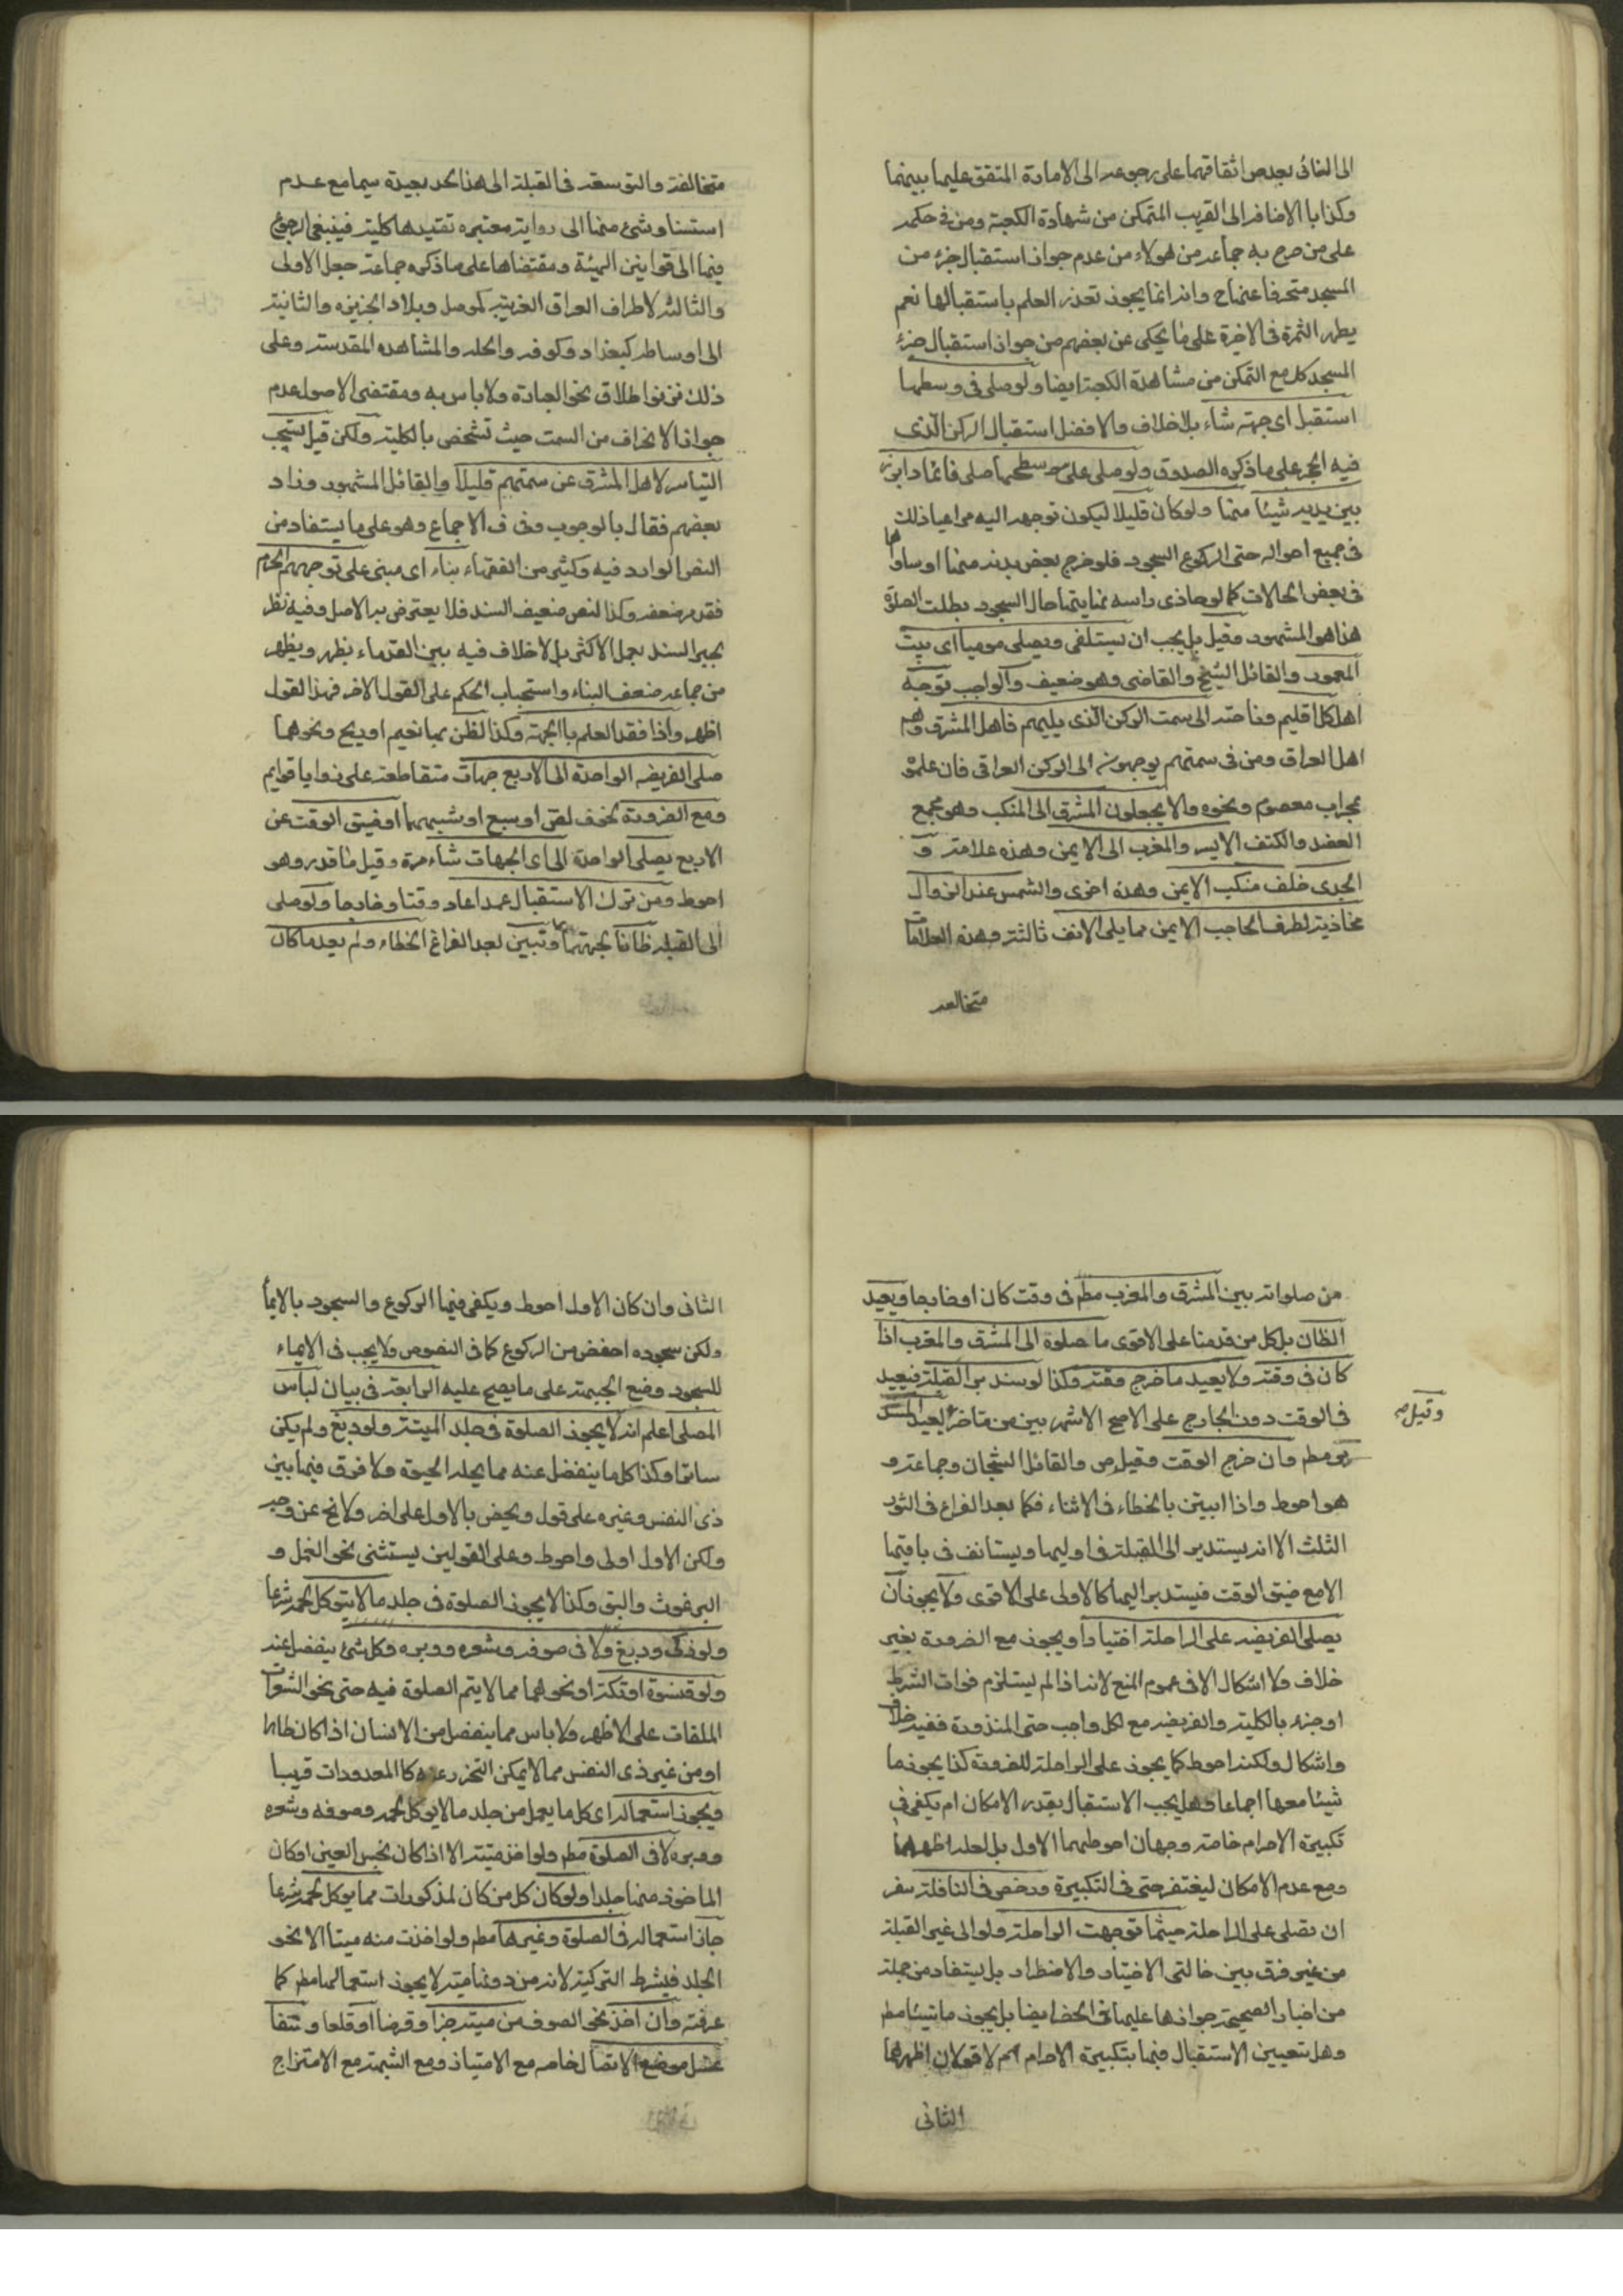 الى الغائى بعد ص اتفاقهما على رجوعه الى الامارة المتفق عليها بينهما
وكذا با الاضافه الى القريب المتمكن من شهادة الكعبة ومن فى حكمه
على من صرح به جماعه من هولاء من عدم جواز استقبال جزء من
المسجد منحرفا عنها ح وانه انما يجوز تعذر العلم باستقبالها نعم
يظهر الثمرة فى الاخيرة على ما يحكى عن بعضهم من جواز استقبال جزء
المسجد كل مع التمكن من مشاهدة الكعبة ايضا ولو صلى فى وسطها
استقبل اى جهته شاء بلا خلاف والافضل استقبال الركن الذى
فيه الحجر على ما ذكره الصدوق ولو صلى على سطحها صلى قائما وابرز
بين يديه شيئا منها ولو كان قليلا ليكون توجهه اليه مراعيا ذلك
فى جميع احواله حتى الركوع السجود فلو خرج بعض بدنه منها او ساواها
فى بعض الحالات كما لو حاذى راسه نهايتها حال السجود بطلت الصلوة
هذا هو المشهور وقيل بل يجب ان يستلقى ويصلى موميا اى بيت
المعمور والقائل الشيخ والقاضى وهو ضعيف والواجب توجه
اهل كل اقليم وناحته الى سمت الركن الذى يليهم فاهل المشرق وهم
اهل العراق ومن فى سمتهم يوجهون الى الركن العراقى فان علموه
بمحراب معصوم ونحوه والا يجعلون المشرق الى المنكب وهو مجمع
العضد والكتف الايسر والمغرب الى الايمن وهذه علامته و
الجدى خلف منكب الايمن وهذه اخرى والشمس عند الزوال
محاذيته لطرف الحاجب الايمن مما يلى الانف ثالثته وهذه العلامات
متخالفه
متخالفته والتوسعه فى القبلته الى هذا الحد بعيدة سيما مع عدم
استناد شئ منها الى روايته معتبره تفيدها كليته فينبغى الرجوع
فيها الى قوانين الهيئة ومقتضاها على ما ذكره جماعته جعل الاولى
والثالثه لاطراف العراق الغربيه كموصل وبلاد الجزيره والثانيته
الى اوساطه كبغداد وكوفه والحله والمشاهده المقدسته وعلى
ذلك نزلوا اطلاق نحو العبارة ولا باس به ومقتضى الاصول عدم
جواز الانحراف من السمت حيث تشخص بالكليته ولكن قيل يستحب
التياسر لاهل المشرق عن سمتهم قليلا والقائل المشهور وزاد
بعضهم فقال بالوجوب وفى ف الاجماع وهو على ما يستفاد من
النص الوارد فيه وكثير من الفقهاء بناء اى مبنى على توجههم الحرم
فقد مر ضعفه وكذا لنص ضعيف السند فلا يعترض به الاصل وفيه نظر
بجبر السند بعمل الاكثر بل لا خلاف فيه بين القدماء يظهر ويظهر
من جماعه ضعف البناء واستحباب الحكم على القول الاخر فهذا القول
اظهر واذا فقد العلم با الجهته وكذا لظن بها لغيم اوريح ونحوهما
صلى الفريضه الواحدة الى الاربع جهات متقاطعته على زوايا قوايم
ومع الضرورة كخوف لص او سبع او شبههما او ضيق الوقت عن
الاربع يصلى الواحدة الى اى الجهات شاء مرة وقيل ما قدر وهو
احوط ومن ترك الاستقبال عمدا اعاد وقتا وخارجا ولو صلى
الى القبله ظانا لجهتها وتبين بعد الفراغ الخطاء ولم يعد ما كان
من صلواته بين المشرق والمغرب مطم فى وقت كان او خارجا ويعيد
الظان بل كل من قدمنا على الاقوى ما صلوة الى المشرق والمغرب اذا
كان فى وقته ولا يعيد ما خرج وقته وكذا لو ستدبر القبلته فيعيد
فى الوقت دون الخارج على الاصح الاشهر بين من تاخر يعيد المستد
وقيل صح
بر مطم وان خرج الوقت وقيل ص والقائل الشيخان وجماعته و
هو احوط واذا ابيتن بالخطاء فى الاثناء فكما بعد الفراغ فى الثور
الثلث الا انه يستدير الى القبلته فى اوليها ويستانف فى باقيها
الا مع ضيق الوقت فيستدبر اليها كالاولى على الاقوى ولا يجوز ان
يصلى الفريضه على الراحلته اختيارا ويجوز مع الضرورة بغير
خلاف ولا اشكال الا فى عموم المنع لانه اذا لم يستلزم فوات الشرط
او جزء بالكليته والفريضه مع لكل واجب حتى المنذورة ففيه خلاف
واشكال ولكنه احوط كما يجوز على الراحلته للضرورة كذا يجوز ما
شيئا معها اجماعا وهل يجب الاستقبال بقدر الامكان ام يكفى فى
تكبيرة الاحرام خاصته وجهان احوطهما الاول بل لعله اظهرهما
ومع عدم الامكان ليغتفر حتى فى التكبيرة ورخص فى النافلته سفر
ان تصلى على الراحلته حيثما توجهت الواحلته ولو الى غير القبلته
من غير فرق بين حالتى الاختيار والاضطرار بل يستفاد من جملته
من اخبار الصحيحته جوازها عليها فى الحضر ايضا بل يجوز ماشيئا مطم
وهل يتعيين الاستقبال فيها بتكبيرة الاحرام ام لا قولان اظهرهما
الثانى
الثانى وان كان الاول احوط ويكفى فيها الركوع والسجود بالايمأ
ولكن سجوده اخفض من الركوع كما فى النصوص ولا يجب فى الايماء
للسجود وضع الجبهته على ما يصح عليه الرابعته فى بيان لباس
المصلى اعلم انه لا يجوز الصلوة فى جلد الميتته ولو دبغ ولم يكن
ساترا وكذا كل ما ينفصل عنه مما يحله الحيوة ولا فرق فيها بين
ذى النفس وغيره على قول ويخص بالاول على اخر ولا نح عن وجه
ولكن الاول اولى واحوط وعلى القولين يستثنى نحو النمل و
البرغوث والبق وكذا لا يجوز الصلوة فى جلد ما لا يتوكل لحمه شرعا
ولو ذكى ودبغ ولا فى صوفه وشعره ووبره وكل شئ ينفصل عنه
ولو قنسوة او تكته او نحوهما مما لا يتم الصلوة فيه حتى نحو الشعرات
الملقات على الاظهر ولا باس مما ينفصل من الانسان اذا كان طاهرا
او من غير ذى النفس مما لا يمكن التحرز عنه كا المعدودات قريبا
ويجوز استعماله اى كل ما يعمل من جلد ما لا يوكل لحمه وصوفه وشعره
ووبره لا فى الصلوة مطم ولو اخذ ميتته الا اذا كان نجس العين او كان
الماخوذ منها جلدا ولو كان كل من كان لمذكورات مما يوكل لحمه شرعا
جاز استعماله فى الصلوة وغيرها مطم ولو اخذت منه ميتا الا نحو
الجلد فيشرط التزكيته لانه من دونها ميته لا يجوز استعمالها مطم كما
عرفته وان اخذ نحو الصوف من ميته جزا وقرضا او قلعا و نتفا
غسل موضع الاتصال خاصه مع الامتياز ومع الشبهته مع الامتزاج